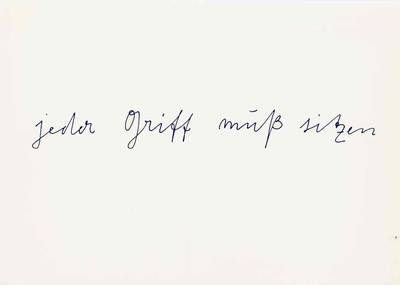 jeder Griff muß sitzen